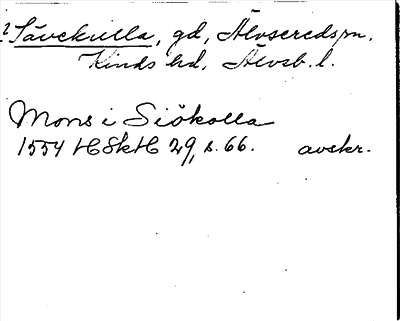 ? Sävekulla, gd, Älvsereds sn.
Kinds hd. Älvsb. l.
Mons i Siökolla
1554 HSkH 29, s. 66. avskr.